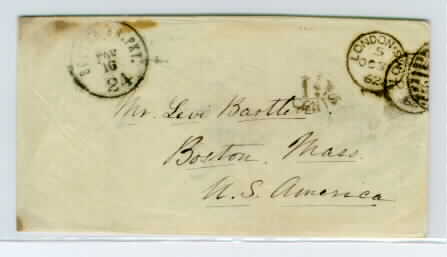 BR. PKT.
16
24
LONDON
5
OC
62
Mr. Levi Bartlett
Boston, Mass.
U. S. America